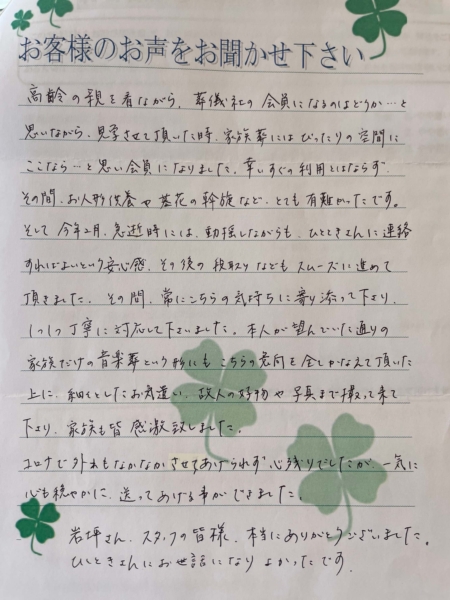 お客様のお声をお聞かせ下さい
高齢の親を看ながら、葬儀社の会員になるのはどうか…と
思いながら、見学させて頂いた時、家族葬にはぴったりの空間に
ここなら…と思い会員になりました。幸いすぐの利用とはならず、
その間、お人形供養や墓花の斡旋など、とても有難かったです。
そして今年2月、急逝時には、動揺しながらも、ひとときさんに連絡
すればよいという安心感、その後の段取りなどもスムーズに進めて
頂きました。その間、常にこちらの気持ちに寄り添って下さり、
一つ一つ丁寧に対応して下さいました。本人が望んでいた通りの
家族だけの音楽葬という形にも、こちらの意向を全てかなえて頂いた
上に、細々としたお気遣い、故人の好物や写真まで撮って来て
下さり、家族も皆感激致しました。
コロナで外出もなかなかさせてあげられず心残りでしたが、一気に
心も穏やかに、送ってあげる事ができました。
岩坪さん、スタッフの皆様、本当にありがとうございました。
ひとときさんにお世話になりよかったです。